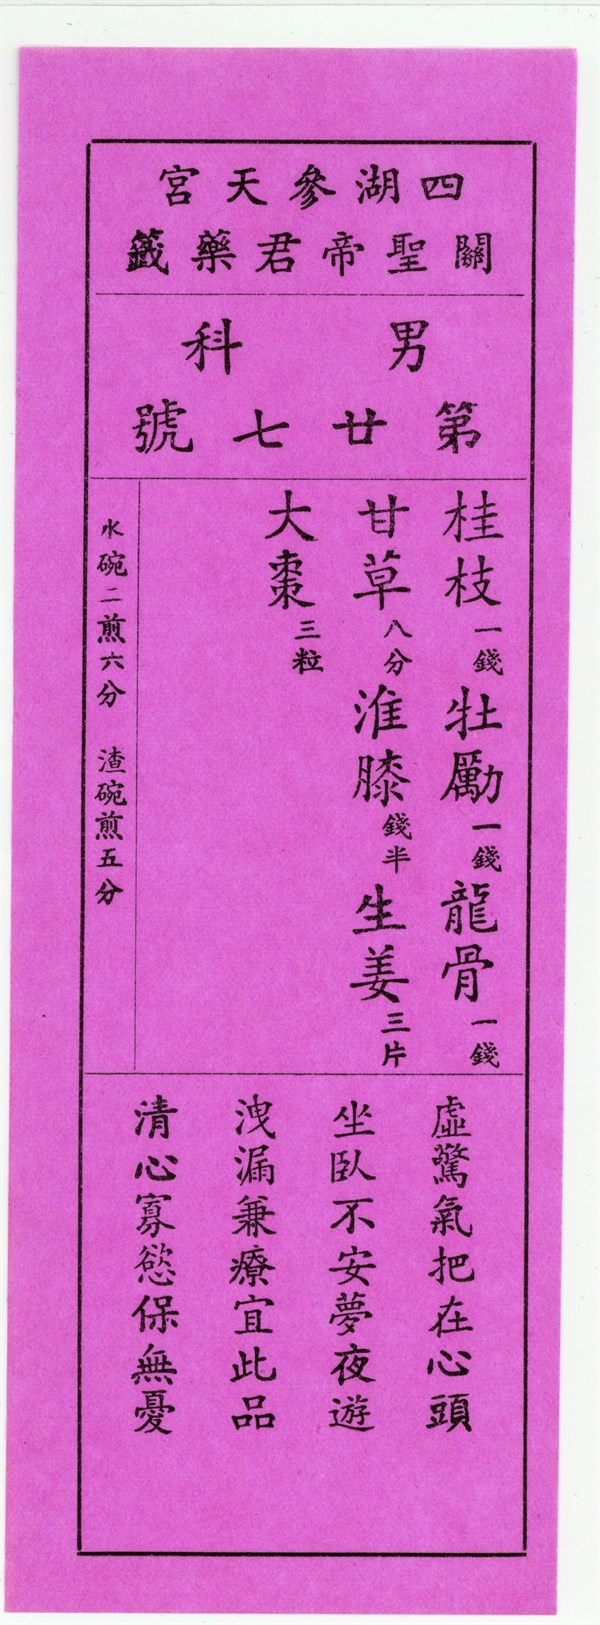 四湖參天宮
關聖帝君藥籤
男科
第廿七號
桂枝一錢牡勵一錢龍骨一錢
甘草八分淮膝錢半生姜三片
大棗三粒
水碗二煎六分　渣碗煎五分
虛驚氣把在心頭
坐臥不安夢夜遊
洩漏兼療宜此品
清心寡慾保無憂